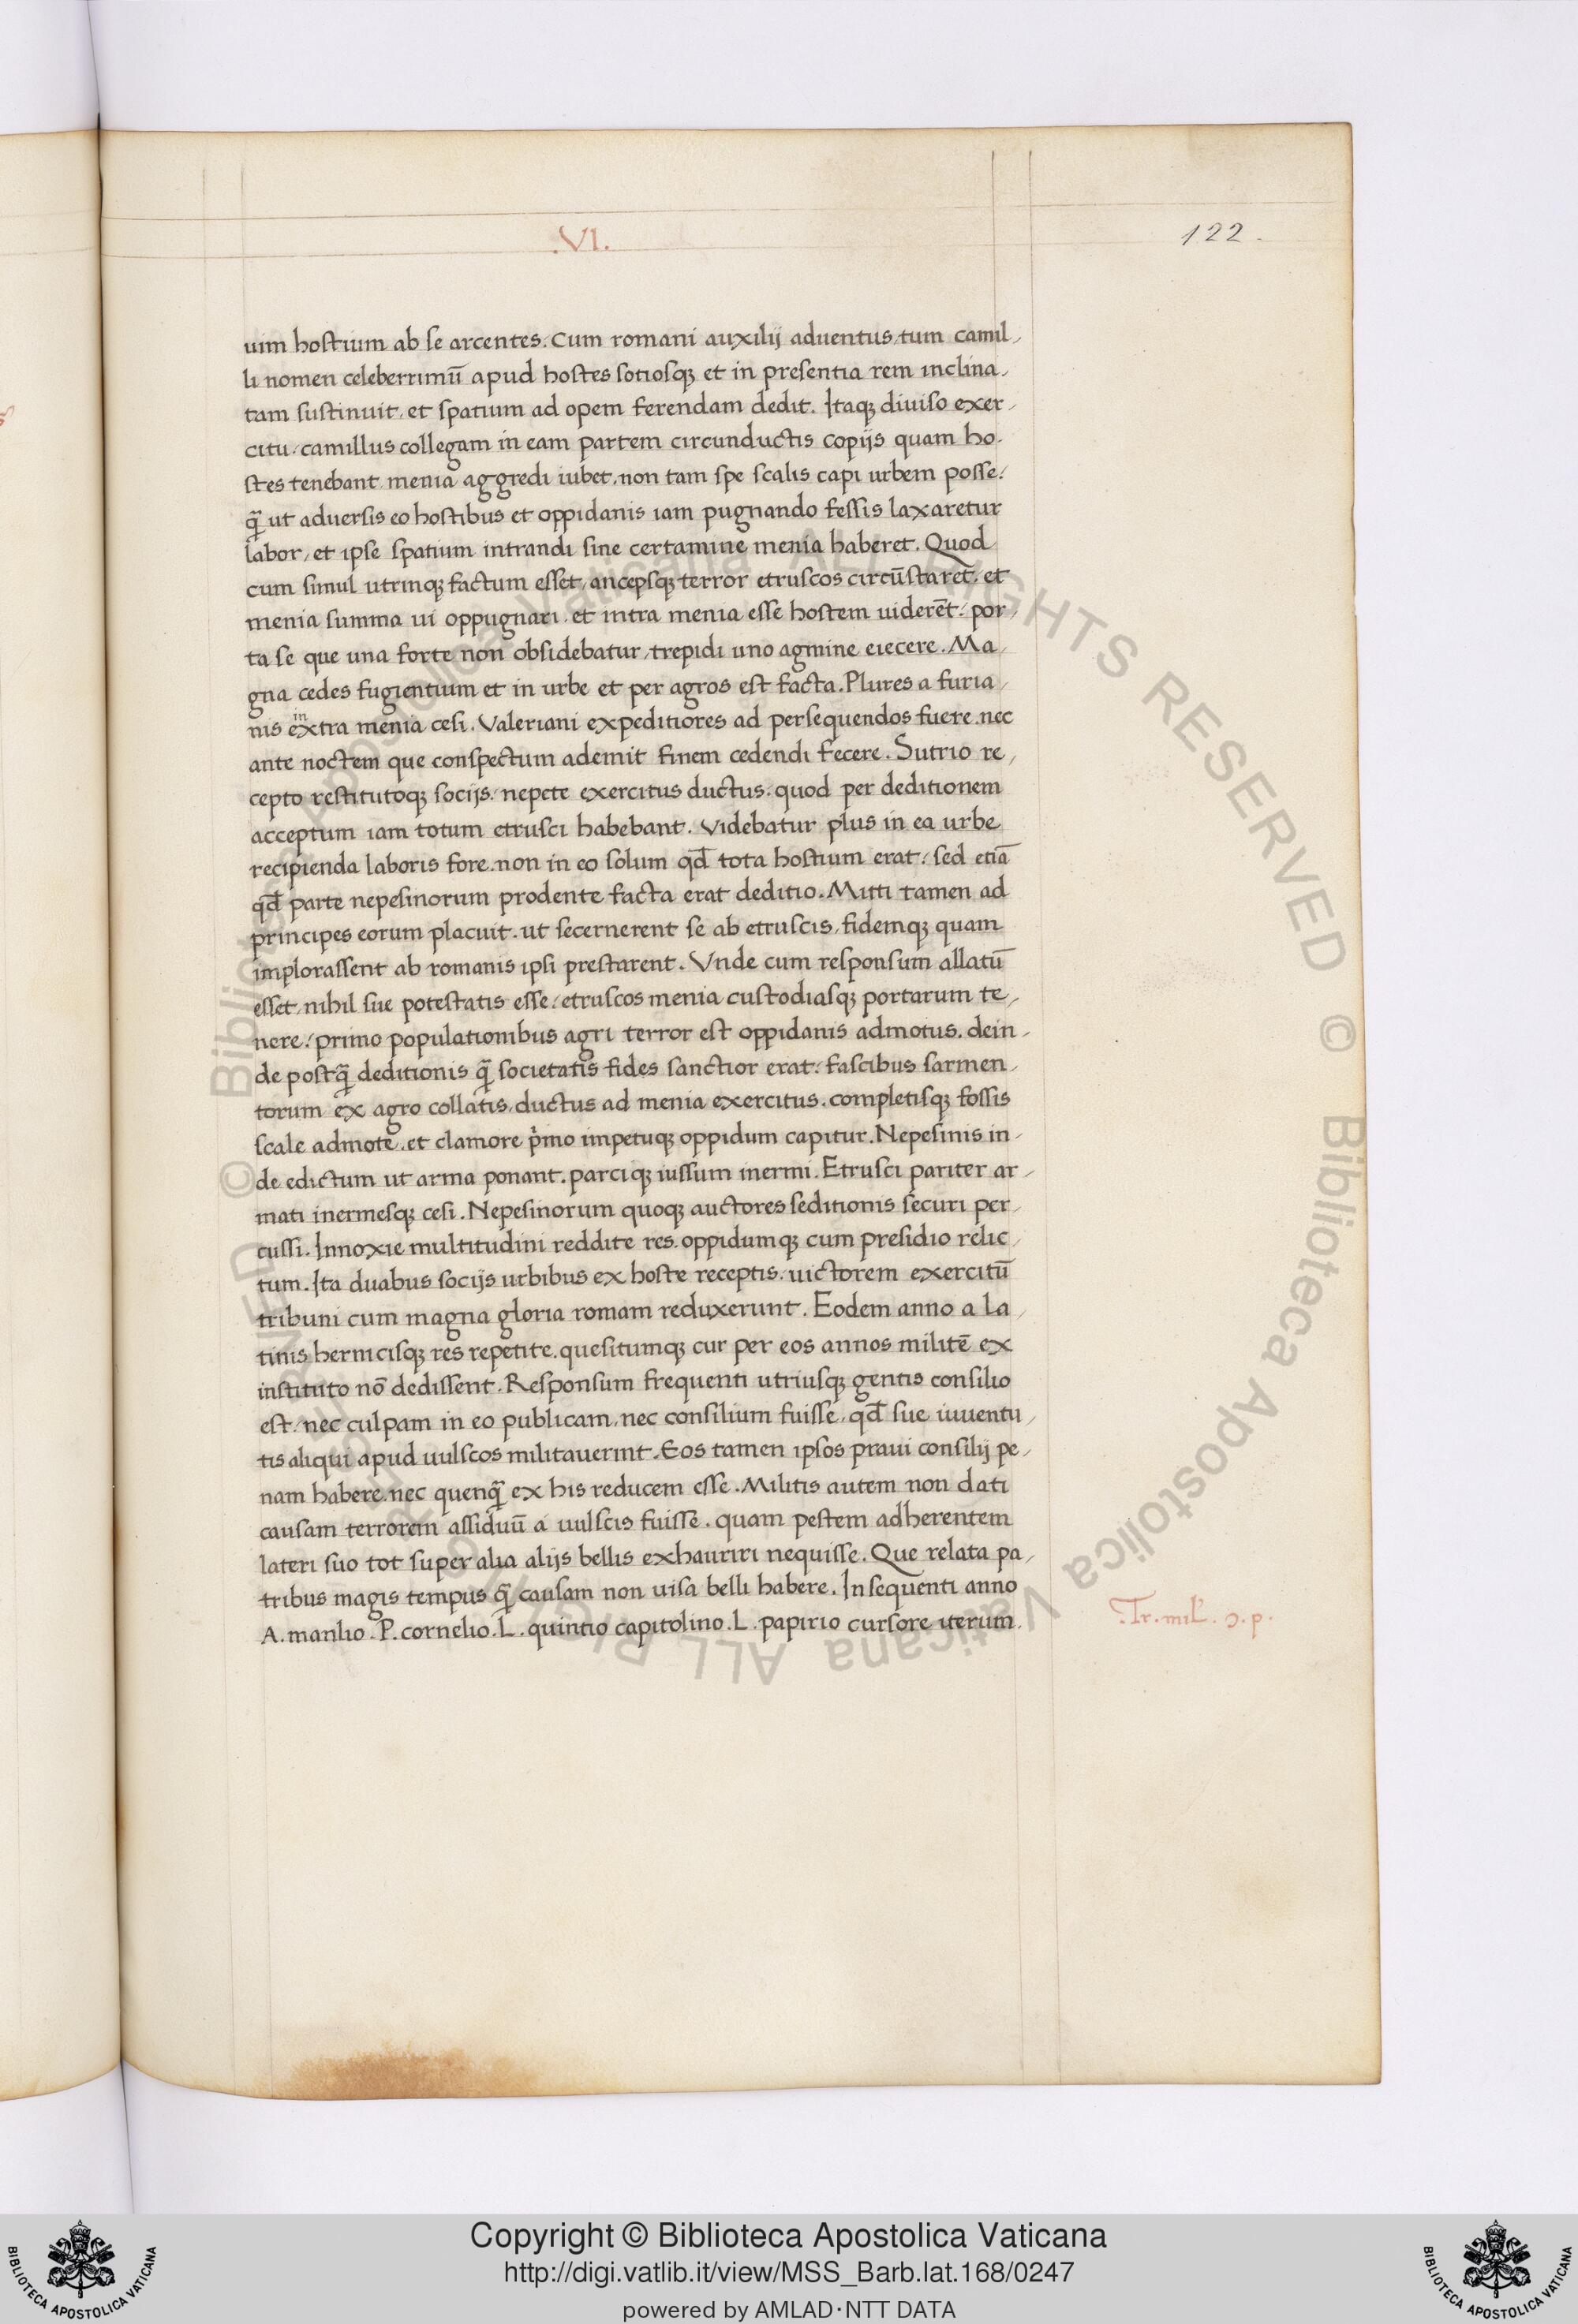 .VI.
122.
uim hostium ab se arcentes. Cum romani auxilij aduentus, tum camil,
li nomen celeberrimū apud hostes sotiosqȝ et in presentia rem inclina,
tam sustinuit, et spatium ad opem ferendam dedit. Itaqȝ diuiso exer,
citu, camillus collegam in eam partem circunductis copijs quam ho,
stes tenebant menia aggredi iubet, non tam spe scalis capi urbem posse,
q̄ ut aduersis eo hostibus et oppidanis iam pugnando fessis laxaretur
labor, et ipse spatium intrandi sine certamine menia haberet. Quod
cum simul utrinqȝ factum esset, ancepsqȝ terror etruscos circūstaret, et
menia summa ui oppugnari, et intra menia esse hostem uiderēt, por,
ta se que una forte non obsidebatur, trepidi uno agmine eiecere. Ma,
gna cedes fugientium et in urbe et per agros est facta. Plures a furia,
in
nis extra menia cesi. Valeriani expeditiores ad persequendos fuere, nec
ante noctem que conspectum ademit finem cedendi fecere. Sutrio re,
cepto restitutoqȝ socijs, nepete exercitus ductus, quod per deditionem
acceptum iam totum etrusci habebant. Videbatur plus in ea urbe
recipienda laboris fore, non in eo solum qd̄ tota hostium erat, sed etiā
qd̄ parte nepesinorum prodente facta erat deditio. Mitti tamen ad
principes eorum placuit, ut secernerent se ab etruscis, fidemqȝ quam
implorassent ab romanis ipsi prestarent. Vnde cum responsum allatū
esset, nihil sue potestatis esse, etruscos menia custodiasqȝ portarum te,
nere, primo populationibus agri terror est oppidanis admotus, dein,
de postq̄ deditionis q̄ societatis fides sanctior erat, fascibus sarmen,
torum ex agro collatis, ductus ad menia exercitus, completisqȝ fossis
scale admote, et clamore p̍mo impetuqȝ oppidum capitur. Nepesinis in,
de edictum ut arma ponant, parciqȝ iussum inermi. Etrusci pariter ar,
mati inermesqȝ cesi. Nepesinorum quoqȝ auctores seditionis securi per,
cussi. Innoxie multitudini reddite res, oppidumqȝ cum presidio relic,
tum. Ita duabus socijs urbibus ex hoste receptis, uictorem exercitū
tribuni cum magna gloria romam reduxerunt. Eodem anno a la,
tinis hernicisqȝ res repetite, quesitumqȝ cur per eos annos militē ex
instituto nō dedissent. Responsum frequenti utriusqȝ gentis consilio
est, nec culpam in eo publicam, nec consilium fuisse, qd̄ sue iuuentu,
tis aliqui apud uulscos militauerint. Eos tamen ipsos praui consilij pe,
nam habere, nec quenq̄ ex his reducem esse. Militis autem non dati
causam terrorem assiduū a uulscis fuisse, quam pestem adherentem
lateri suo tot super alia alijs bellis exhauriri nequisse. Que relata pa,
tribus magis tempus q̄ causam non uisa belli habere. Insequenti anno
A. manlio. P. cornelio. L. quintio capitolino. L. papirio cursore iterum
Tr. mil. ɔ. p.
Copyright © Biblioteca Apostolica Vaticana
http://digi.vatlib.it/view/MSS_Barb.lat.168/0247
powered by AMLAD·NTT DATA
BIBLIOTECA APOSTOLICA VATICANA
BIBLIOTECA APOSTOLICA VATICANA
© Biblioteca Apostolica Vaticana ALL RIGHTS RESERVED © Biblioteca Apostolica Vaticana ALL RIGHTS RESERVED